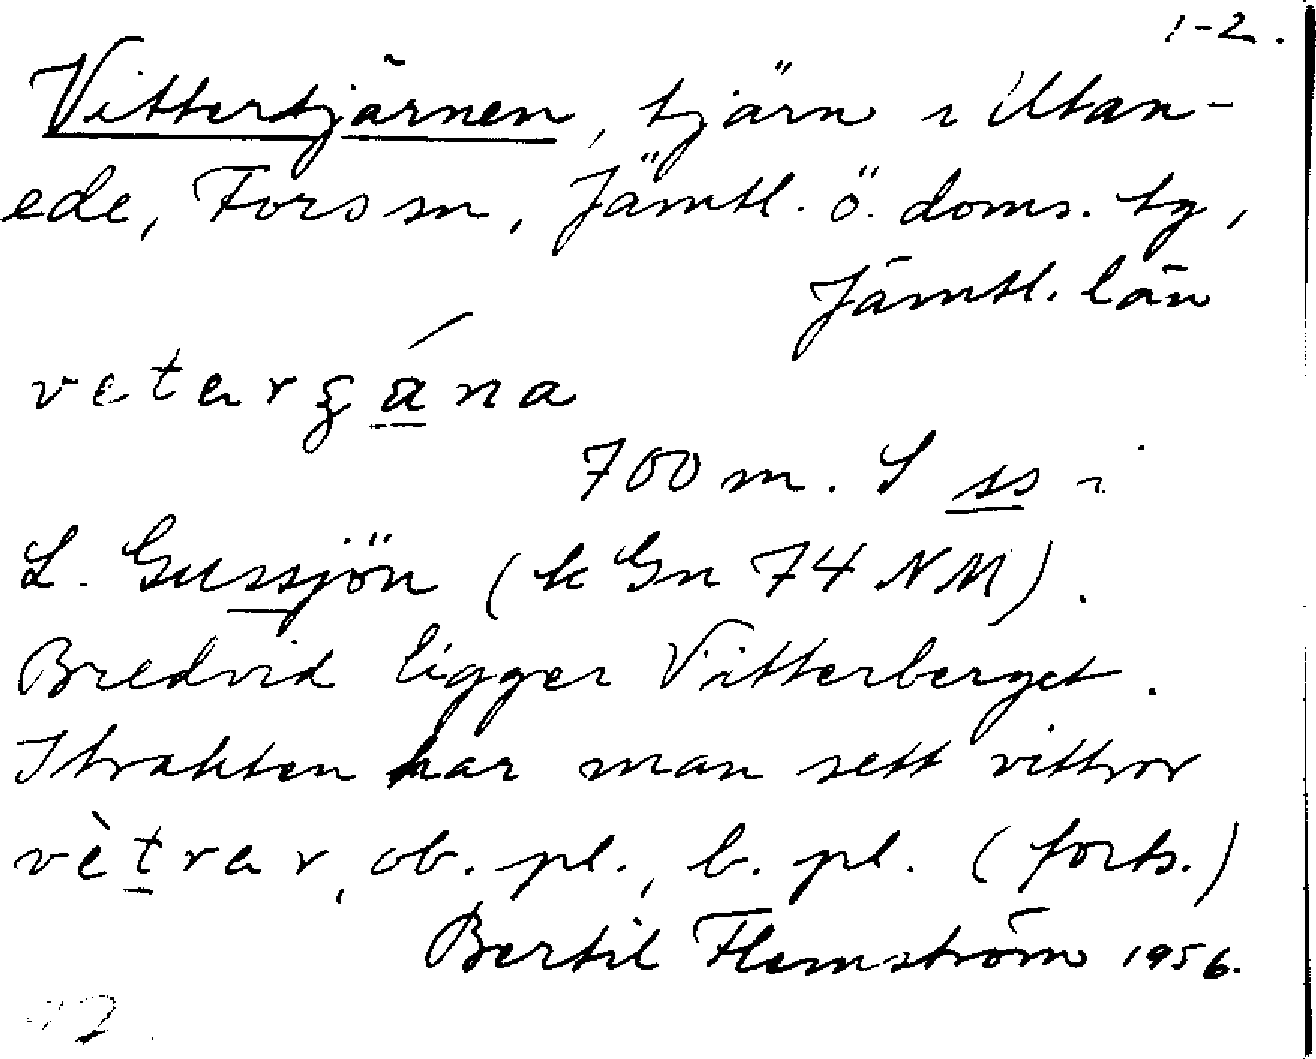 1-2.
Vittertjärnen, tjärn i Utan-
ede, Fors sn, Jämtl. ö. doms. tg,
Jämtl. län
700 m. S ss i
L. Gussjön (k Gn 74 NM).
Bredvid ligger Vitterberget.
I trakten har man sett vittror
vètrar, ob. pl., b. pl. (forts.)
Bertil Flemström 1956.